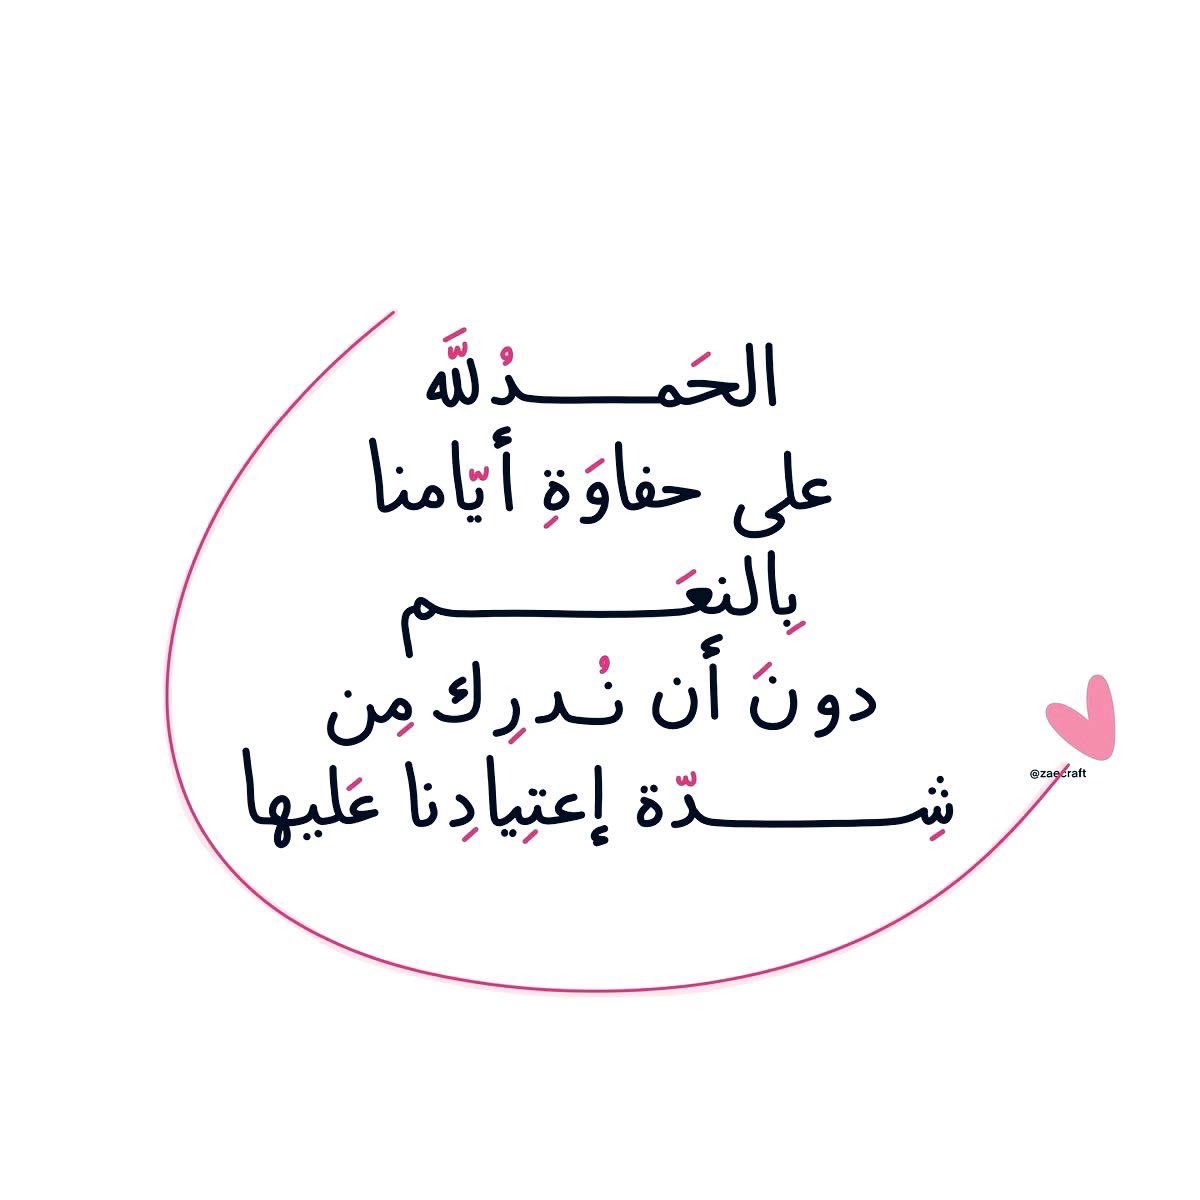 الحَمـــدُ للَّه
على حفاوَةِ أيّامنا
بِالنعَـــــم
دونَ أن نُـدرِك مِن
شِـــــدّة إعتِيادِنا عَليها
@zaecraft